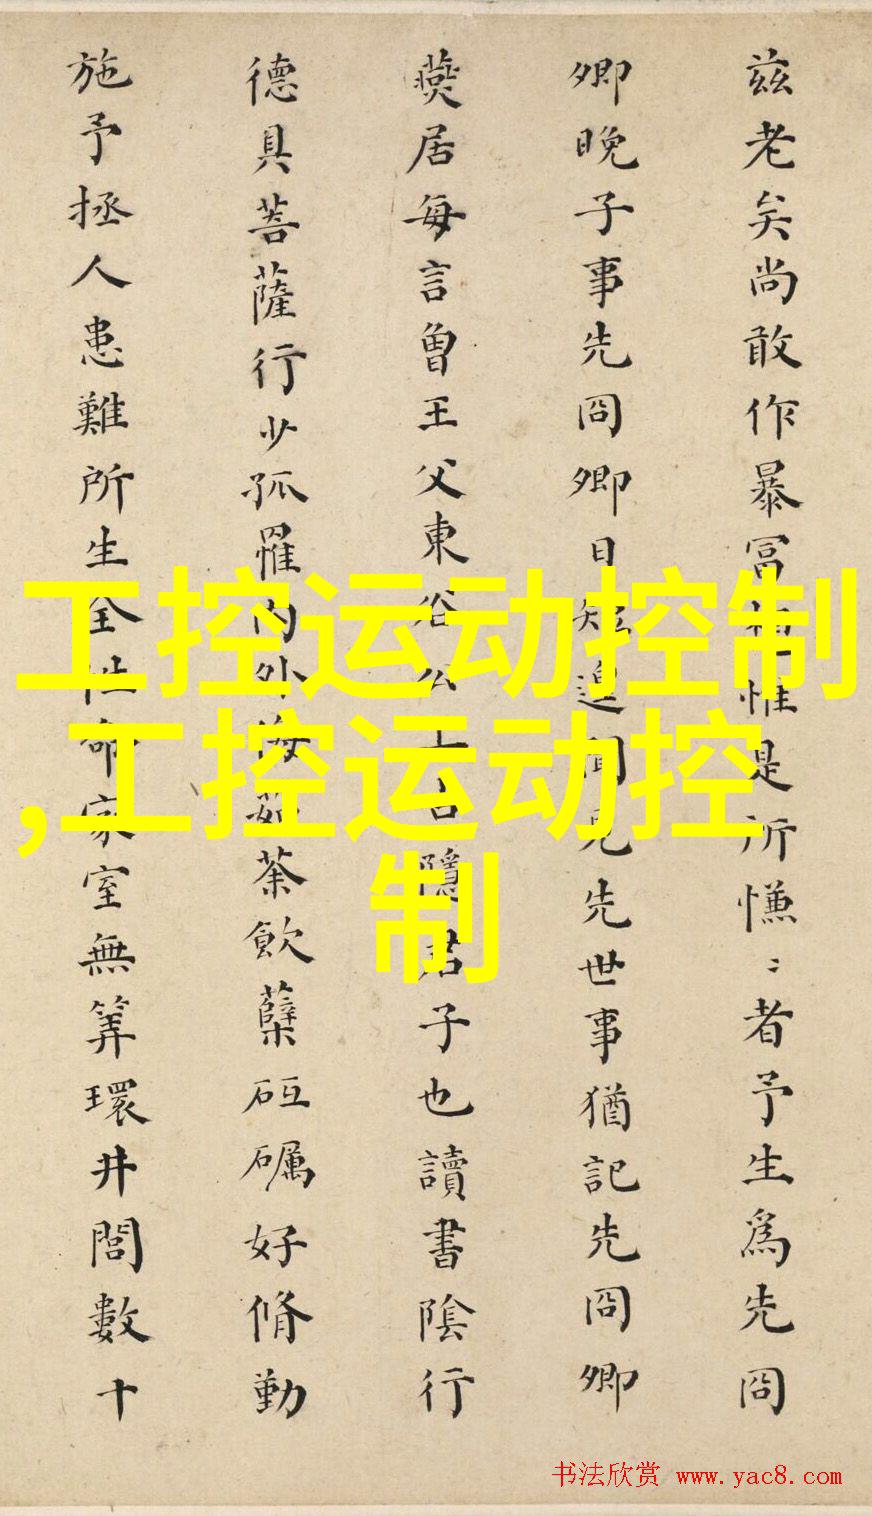 兹老矣尚敢作暴冨惟是所慊〻者予生爲先冏
卿晚子事先冏卿日短邉聞見先世事猶記先冏卿
燕居每言曾王父東谷公士君隱君子也讀書陰行
德具菩薩行少孤罹内外侮茹荼飲蘖砥礪好脩勤
施予拯人患難所生全性命家室無筭環井閭數十
工控运动控制
,工控运动控
制
书法欣赏 www.yac8.com